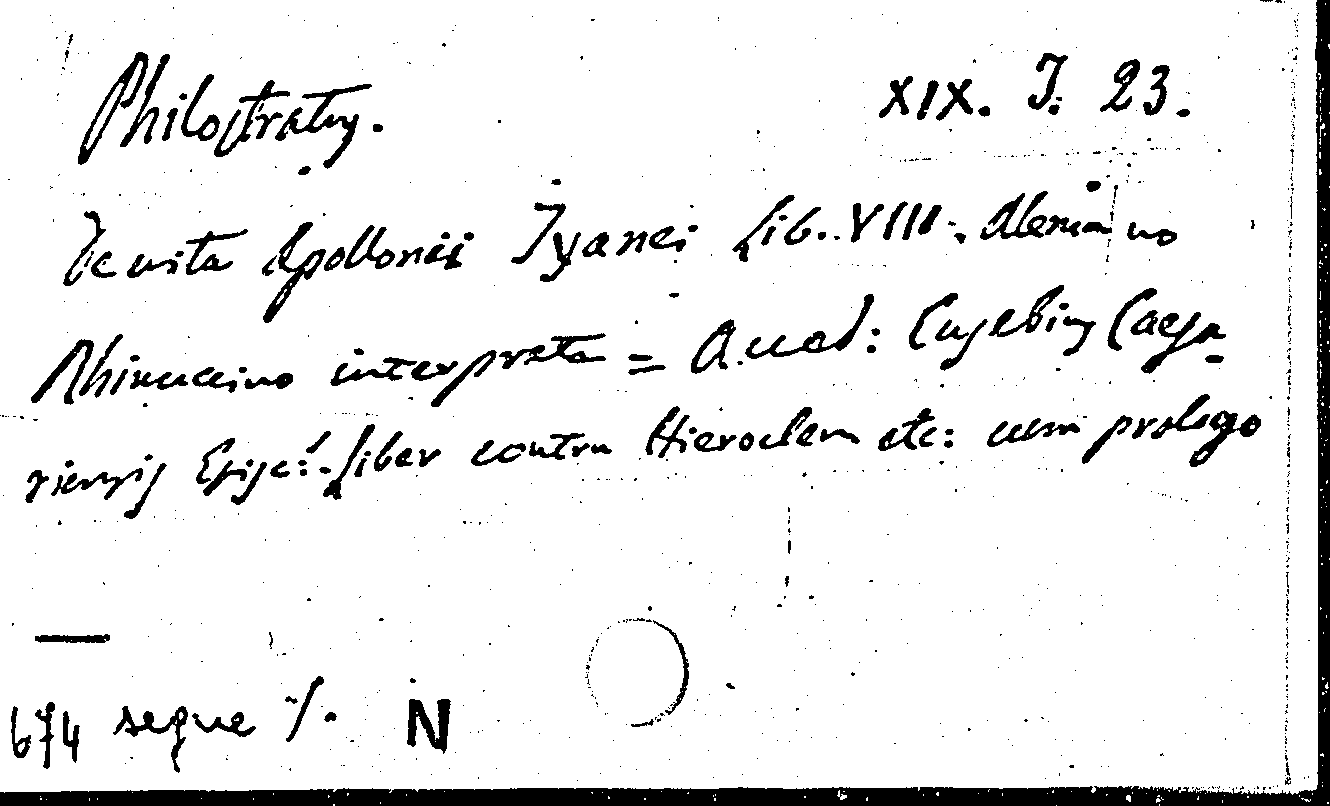 Philostratus. XIX. I. 23.
De vita Apollonii Tyanei Lib. VIII. Alemano
Rhinuccino interprete = Acced: Eusebius Caesa-
riensis Episc: Liber contra Hieroclem etc: cum prologo
674 segue %. N